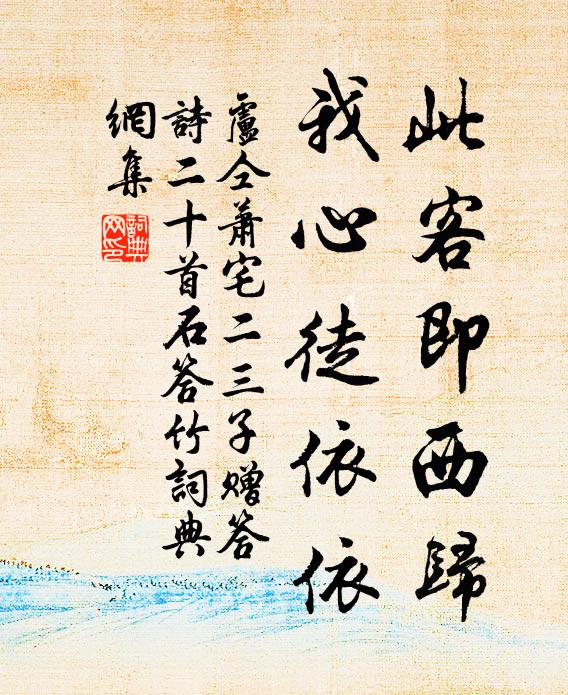 此客即西歸
我心徒依依
盧仝蕭宅二三子贈答
詩二十首石答竹詞典
網集
詞典
网印